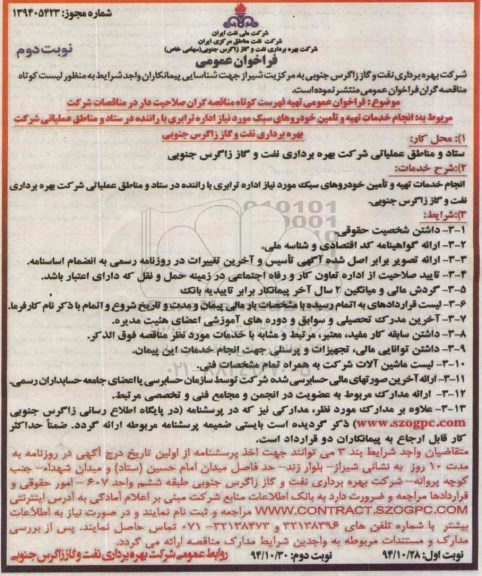 شماره مجوز: ۱۳۹۴۰۵۴۲۳
شرکت ملی نفت ایران
شرکت نفت مناطق مرکزی ایران
شرکت بهره برداری نفت و گاز زاگرس جنوبی(سهامی خاص)
نوبت دوم
فراخوان عمومی
شرکت بهره برداری نفت و گاز زاگرس جنوبی به مرکزیت شیراز جهت شناسایی پیمانکاران واجد شرایط به منظور لیست کوتاه
مناقصه گران فراخوان عمومی منتشر نموده است.
موضوع: فراخوان عمومی تهیه فهرست کوتاه مناقصه گران صلاحیت دار در مناقصات شرکت
مربوط به: انجام خدمات تهیه و تأمین خودروهای سبک مورد نیاز اداره ترابری با راننده در ستاد و مناطق عملیاتی شرکت
بهره برداری نفت و گاز زاگرس جنوبی
۱): محل کار:
ستاد و مناطق عملیاتی شرکت بهره برداری نفت و گاز زاگرس جنوبی
۲):شرح خدمات:
انجام خدمات تهیه و تأمین خودروهای سبک مورد نیاز اداره ترابری با راننده در ستاد و مناطق عملیاتی شرکت بهره برداری
نفت و گاز زاگرس جنوبی.
۳):شرایط:
۳-۱- داشتن شخصیت حقوقی.
۳-۲- ارائه گواهینامه کد اقتصادی و شناسه ملی.
۳-۳- ارائه تصویر برابر اصل شده آگهی تأسیس و آخرین تغییرات در روزنامه رسمی به انضمام اساسنامه.
۳-۴- تایید صلاحیت از اداره تعاون کار و رفاه اجتماعی در زمینه حمل و نقل که دارای اعتبار باشد.
۳-۵- گردش مالی و میانگین ۲ سال آخر پیمانکار برابر تاییدیه بانک
۳-۶- لیست قراردادهای به اتمام رسیده با مشخصات بار مالی پیمان و مدت و تاریخ شروع و اتمام با ذکر نام کارفرما.
۳-۷- آخرین مدرک تحصیلی و سوابق و دوره های آموزشی اعضای هئیت مدیره.
۳-۸- داشتن سابقه کار مفید، معتبر، مرتبط و مشابه با خدمات مورد نظر مناقصه فوق الذکر.
۳-۹- داشتن توانایی مالی، تجهیزات و پرسنلی جهت انجام خدمات این پیمان.
۳-۱۰- لیست ماشین آلات شرکت به همراه تمام مشخصات فنی.
۳-۱۱- ارائه آخرین صورتهای مالی حسابرسی شده شرکت توسط سازمان حسابرسی یا اعضای جامعه حسابداران رسمی.
۳-۱۲- ارائه مدارک مربوط به عضویت در انجمن و مجامع فنی و تخصصی مرتبط.
۳-۱۳- علاوه بر مدارک مورد نظر، مدارکی نیز که در پرسشنامه (در پایگاه اطلاع رسانی زاگرس جنوبی
www.szogpc.com) ذکر گردیده است بایستی ضمیمه پرسشنامه مربوطه ارائه گردد. ضمناً حداکثر
کار قابل ارجاع به پیمانکاران دو قرارداد است.
متقاضیان واجد شرایط بند ۳ می توانند جهت اخذ پرسشنامه از اولین تاریخ درج آگهی در روزنامه به
مدت ۱۰ روز به نشانی شیراز- بلوار زند- حد فاصل میدان امام حسین (ستاد) و میدان شهداء- جنب
کوچه پروانه- شرکت بهره برداری نفت و گاز زاگرس جنوبی طبقه ششم واحد ۶۰۷ - امور حقوقی و
قراردادها مراجعه و ضرورت دارد به بانک اطلاعات منابع شرکت مبنی بر اعلام آمادگی به آدرس اینترنتی
WWW.CONTRACT.SZOGPC.COM مراجعه و ثبت نام نمایند و در صورت نیاز به اطلاعات
بیشتر با شماره تلفن های ۳۲۱۳۸۳۹۶ و ۳۲۱۳۸۴۷۳-۰۷۱ تماس حاصل نمایند. پس از بررسی
مدارک و مستندات مربوطه به واجدین شرایط مدارک مناقصه ارائه می گردد.
نوبت اول: ۹۴/۱۰/۲۸ نوبت دوم: ۹۴/۱۰/۳۰ روابط عمومی شرکت بهره برداری نفت و گاز زاگرس جنوبی